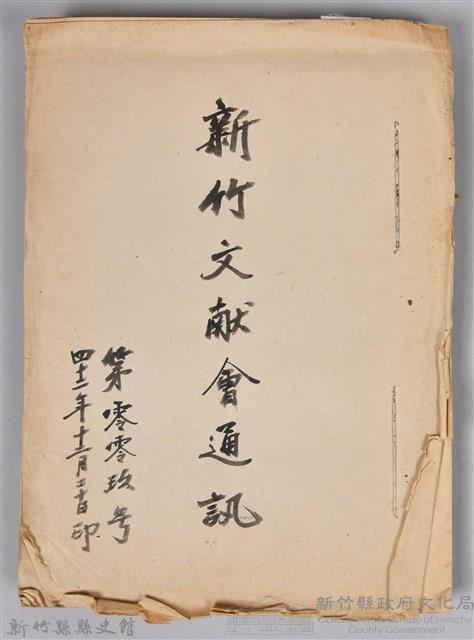 新竹文献會通訊
第零零玖号
四十二年十二月二十日印
新竹縣縣史館
新竹縣政府文化局
Cultural Affairs Bureau of Hsinchu
County Government